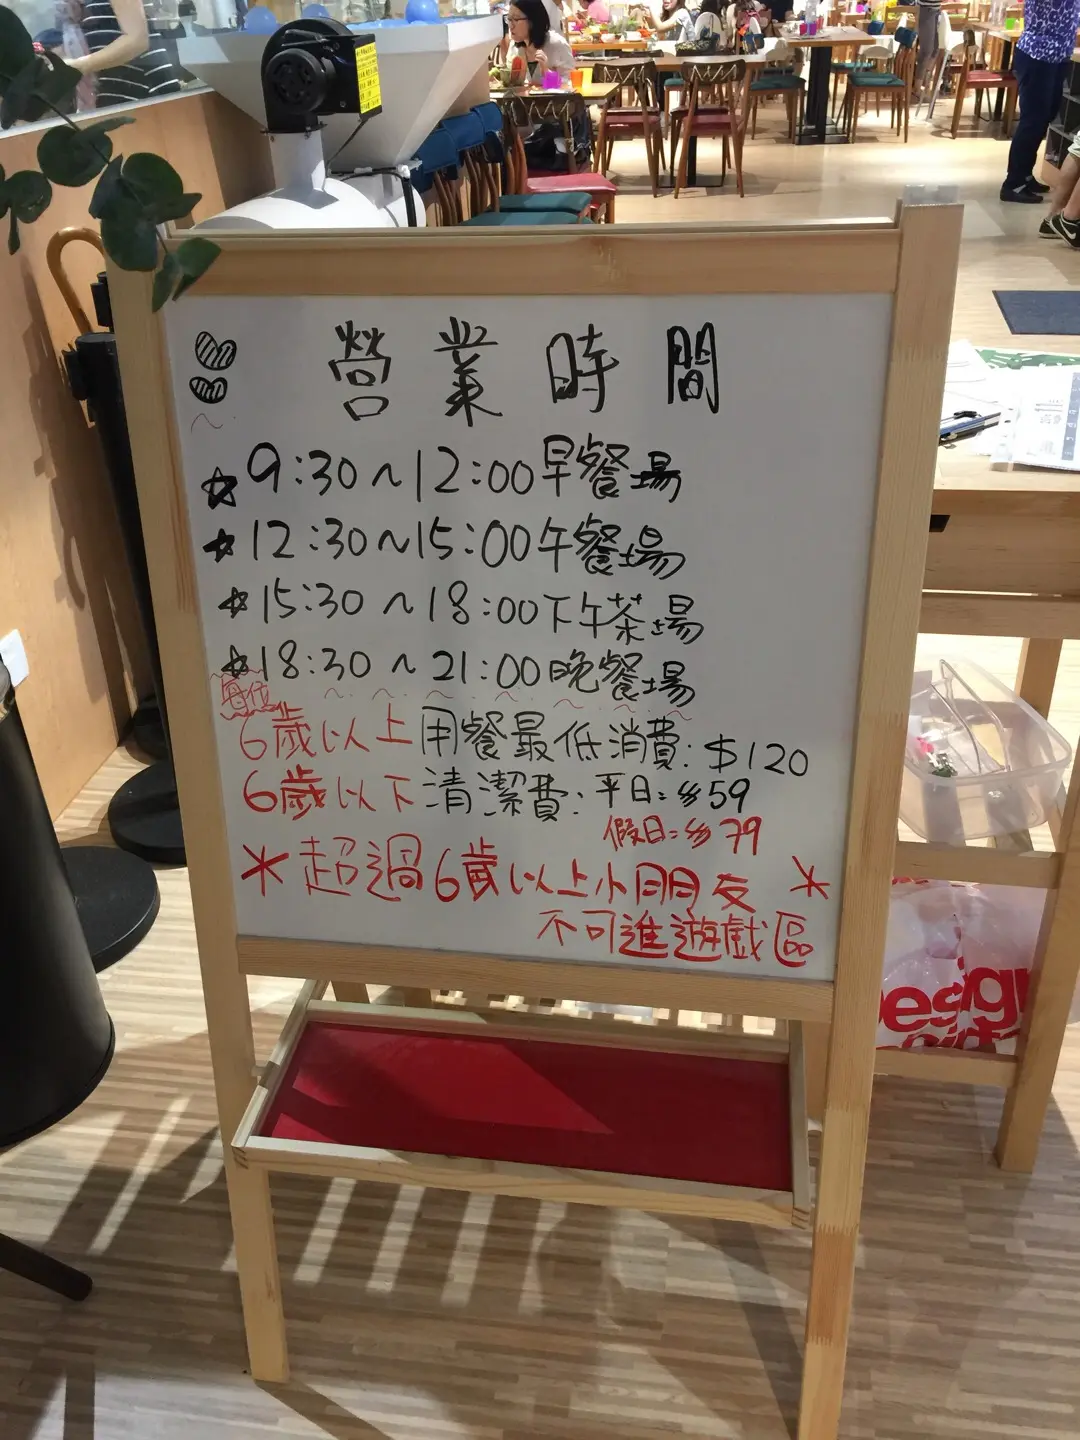 營業時間
9:30~12:00早餐場
12:30~15:00午餐場
15:30~18:00下午茶場
18:30~21:00晚餐場
每位
6歲以上用餐最低消費:$120
6歲以下清潔費:平日:$59
假日:$79
*超過6歲以上小朋友*
不可進遊戲區